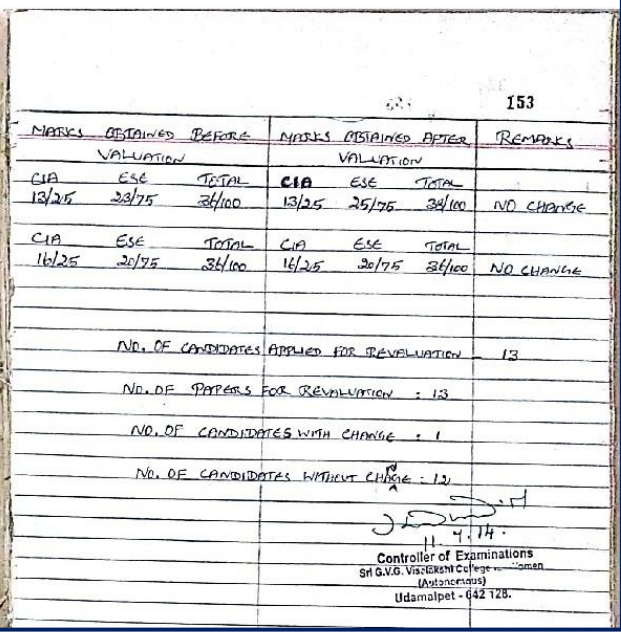 153
MARKS OBTAINED BEFORE MARKS OBTAINED AFTER REMARKS
VALUATION VALUATION
CIA ESE TOTAL CIA ESE TOTAL
13/25 23/75 36/100 13/25 25/75 38/100 NO CHANGE
CIA ESE TOTAL CIA ESE TOTAL
16/25 20/75 36/100 16/25 20/75 36/100 NO CHANGE
NO. OF CANDIDATES APPLIED FOR REVALUATION - 13
NO. OF PAPERS FOR REVALUATION : 13
NO. OF CANDIDATES WITH CHANGE : 1
NO. OF CANDIDATES WITHOUT CHANGE : 12
11.7.14.
Controller of Examinations
Sri G.V.G. Visalakshi College Women
(Autonomous)
Udamalpet - 642 128.